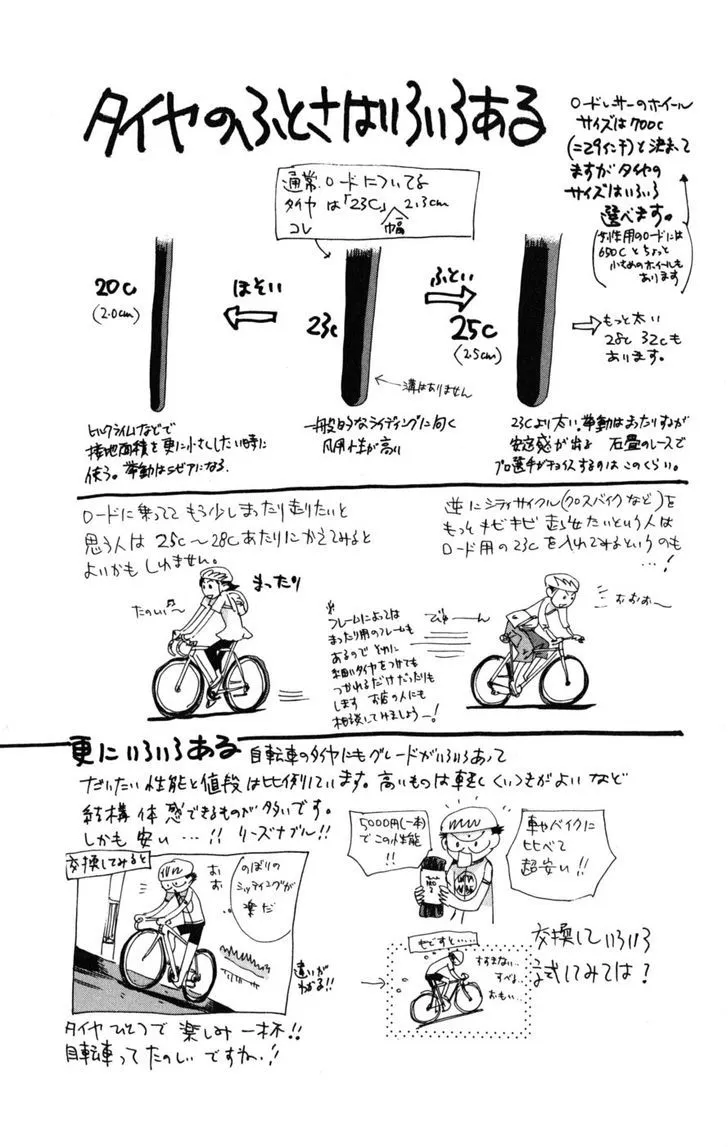 タイヤのふとさはいろいろある
ロードレーサーのホイール
サイズは700c
(=29インチ)と決まって
ますがタイヤの
サイズはいろいろ
選べます。
(女性用のロードには
650Cとちょっと
小さめのホイールも
あります)
通常ロードについてる
タイヤは「23C」 2.3cm
コレ 幅
20c
(2.0cm)
ほそい
23c
ふとい
25c
(2.5cm)
もっと太い
28c 32cも
あります。
溝はありません
ヒルクライムなどで
接地面積を更に小さくしたい時に
使う。挙動はシビアになる。
一般的なライディングに向く
汎用性が高い
23Cより太い。挙動はまったりするが
安定感が出る 石畳のレースで
プロ選手がチョイスするのはこのくらい。
ロードに乗ってて もう少しまったり走りたいと
思う人は 25c〜28cあたりにかえてみると
よいかもしれません。
まったり
たのしい〜♪
逆にシティサイクル(クロスバイクなど)を
もっとキビキビ 走らせたいという人は
ロード用の23cを入れてみるというのも
…!
おおお〜
びゅーん
※
フレームによっては
まったり用のフレームも
あるので とくに
細いタイヤをつけても
つかれるだけだったりも
します お店の人にも
相談してみましょうー!
更にいろいろある 自転車のタイヤにもグレードがいろいろあって
だいたい性能と値段は比例しています。高いものは軽くくいつきがよいなど
結構体感できるものが多いです。
しかも安い…!! リーズナブル!!
交換してみると
おお
のぼりの
シッティングが
楽だ
違いが
わかる!!
5000円(一本)
でこの性能
!!
車やバイクに
比べて
超安い!!
やせすと……
すすまない…
すべる…
おもい…
交換していろいろ
試してみては?
タイヤひとつで 楽しみ一杯!!
自転車ってたのしいですね…!